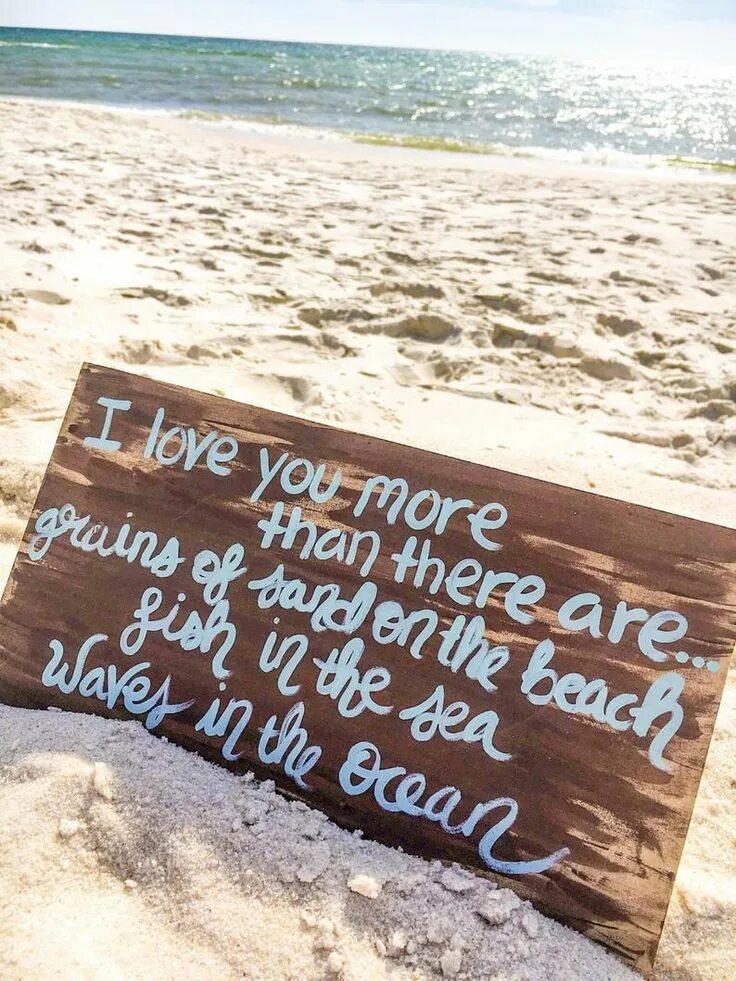 I love you more
than there are...
grains of sand on the beach
fish in the sea
Waves in the Ocean